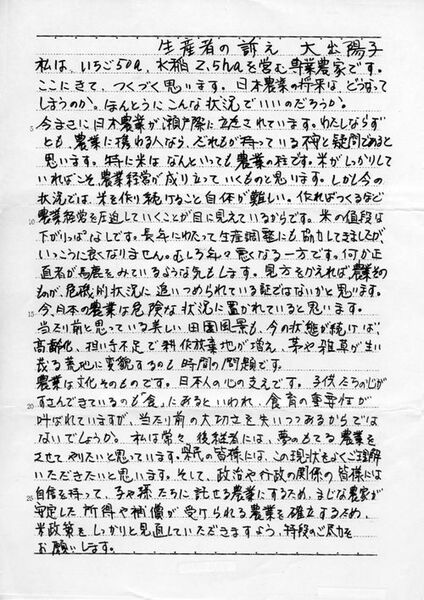 生産者の訴え 大出陽子
私は、いちご50a、水稲2.5haを営む専業農家です。
ここにきて、つくづく思います。日本農業の将来は、どうなって
しまうのか。ほんとうにこんな状況でいいのだろうか。
5 今まさに日本農業が瀬戸際に立たされています。わたしならず
とも、農業に携わる人なら、だれもが持っている 疑問であると
思います。特に米は なんといっても農業の柱です。米がしっかりして
いればこそ、農業経営が成り立っていくものと思います。しかし今の
状況では、米を作り続けること自体が難しい。作ればつくるほど
10 農業経営を圧迫していくことが目に見えているからです。米の値段は
下がりっぱなしです。長年にわたって生産調整にも協力してきましたが、
いっこうに良くなりません。むしろ年々悪くなる一方です。何か正
直者が馬鹿をみているような気もします。見方をかえれば農業その
ものが、危機的状況に追いつめられている証ではないかと思います。
15 今、日本の農業は危険な状況に置かれていると思います。
当たり前と思っている美しい田園風景も、今の状態が続けば、
高齢化、担い手不足で耕作放棄地が増え、茅や雑草が生い
茂る荒地に変貌するのも時間の問題です。
農業は文化そのものです。日本人の心の支えです。子供たちの心が
20 すさんできているのも「食」にあるといわれ、食育の重要性が
叫ばれていますが、当たり前の大切さを失いつつあるからでは
ないでしょうか。私は常々、後継者には、夢のもてる農業を
させてやりたいと思っています。県民の皆様には、この現状をよくご理解
いただきたいと思います。そして、政治や行政の関係の皆様には
25 自信を持って、子や孫たちに託せる農業にするため、まじめな農家が
安定した所得や補償が受けられる農業を確立するため、
米政策をしっかりと見直していただきますよう、特段のご尽力を
お願いします。